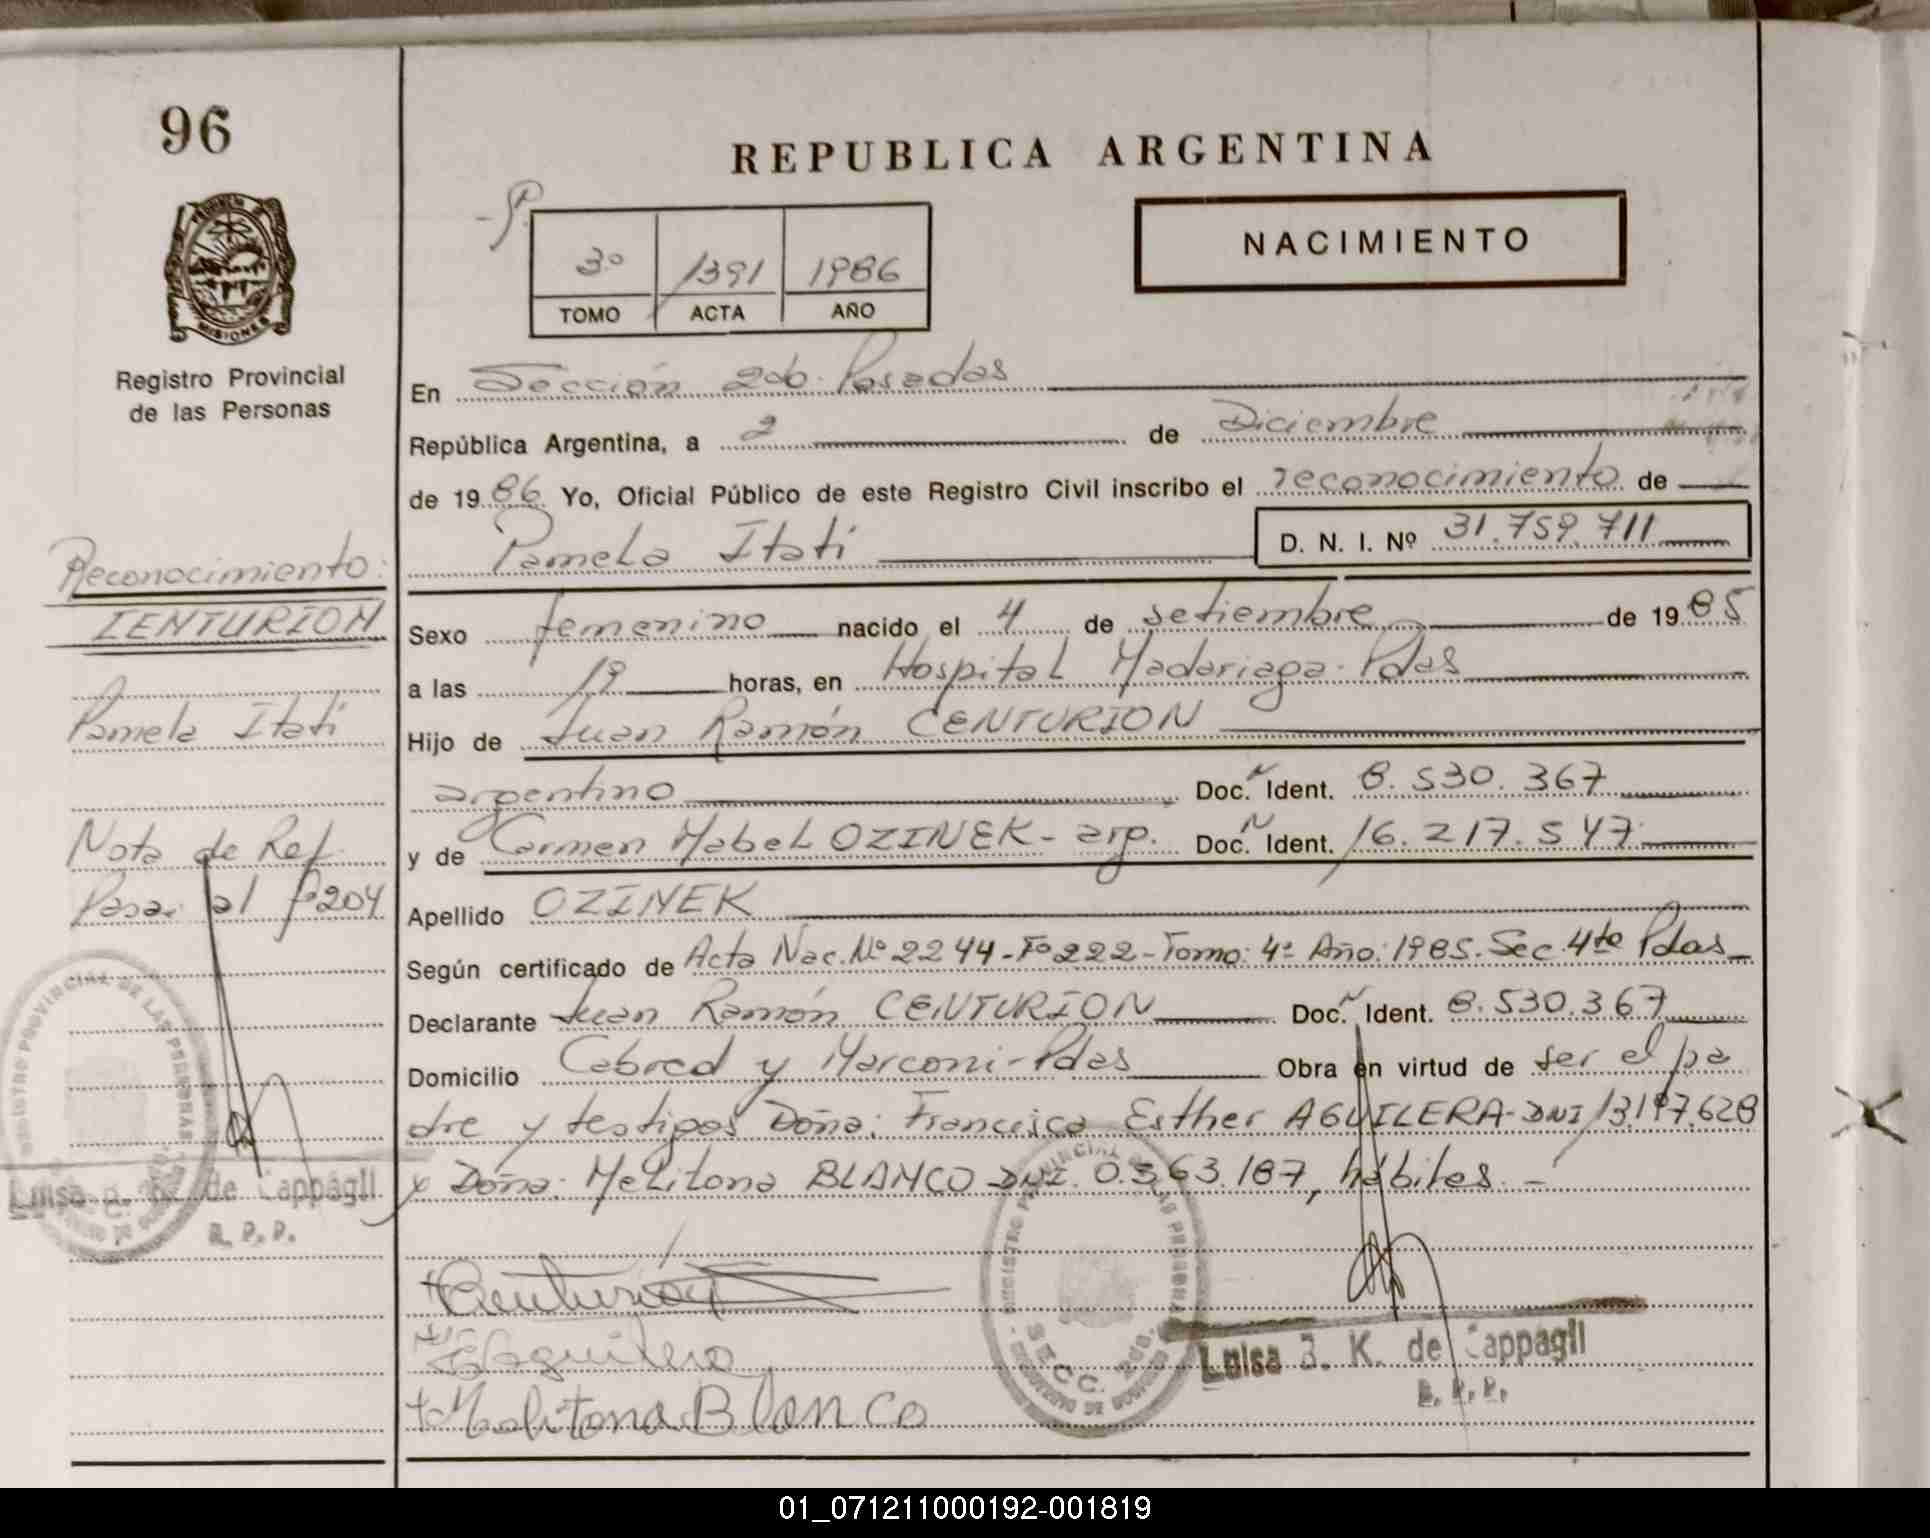 96
REPUBLICA ARGENTINA
NACIMIENTO
3º 1391 1986
TOMO ACTA AÑO
PROVINCIA
MISIONES
Registro Provincial
de las Personas
En Sección 2da. Posadas
República Argentina, a 2 de Diciembre
de 1986 Yo, Oficial Público de este Registro Civil inscribo el reconocimiento de
Pamela Itati D. N. I. Nº 31.759.711
Sexo femenino nacido el 4 de setiembre de 1985
a las 19 horas, en Hospital Madariaga-Pdas
Hijo de Juan Ramón CENTURION
argentino Doc. N Ident. 8.530.367
y de Carmen Mabel OZINEK - arg. Doc. N Ident. 16.217.547
Apellido OZINEK
Según certificado de Acta Nac. Nº 2244-Fº222-Tomo: 4º Año: 1985. Sec. 4ta Pdas
Declarante Juan Ramón CENTURION Doc. N Ident. 8.530.367
Domicilio Cabred y Marconi-Pdas Obra en virtud de ser el pa
dre y testigos Doña: Francisca Esther AGUILERA-DNI 13.197.628
y Doña: Melitona BLANCO DNI. 0.363.187, hábiles. -
Centurión
Aguilera
Melitona Blanco
Luisa B. K. de Cappagli
R. P. P.
SECC. 2da.
Reconocimiento:
CENTURION
Pamela Itati
Nota de Ref.
Pasa al fº 204
REGISTRO PROVINCIAL DE LAS PERSONAS
Luisa B. K. de Cappagli
R. P. P.
01_071211000192-001819